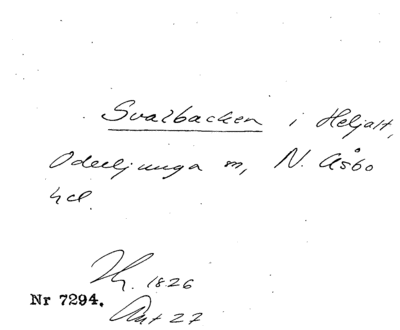 Svalbacken i Heljalt,
Oderljunga sn, N. Åsbo
hd.
1826
Nr 7294.
Akt 27